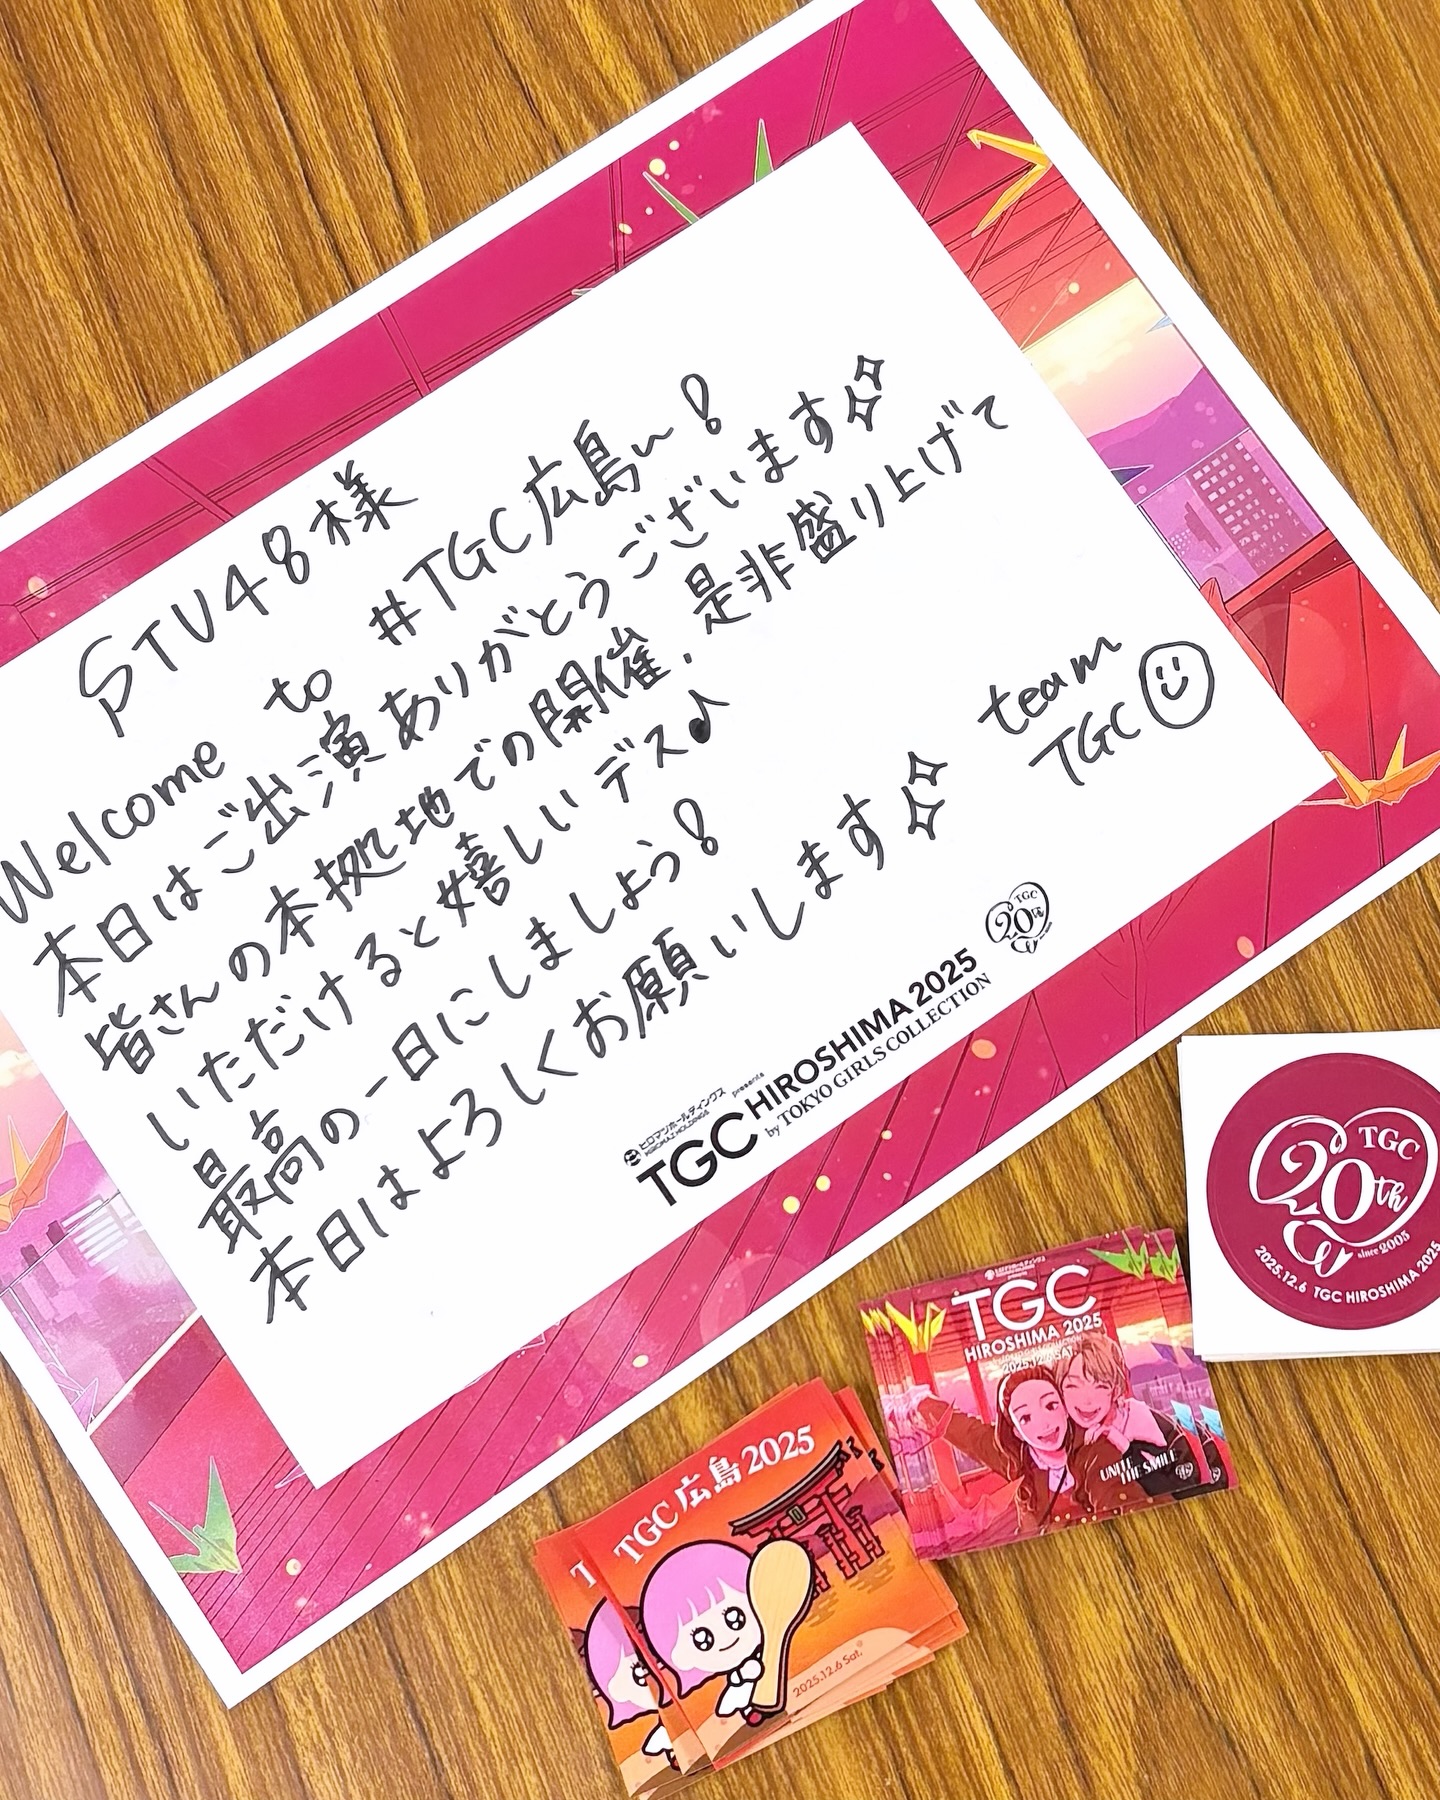 STU48様
Welcome to #TGC広島〜!
本日はご出演ありがとうございます✨
皆さんの本拠地での開催、是非盛り上げて
いただけると嬉しいデス♪
最高の一日にしましょう!
本日はよろしくお願いします✨
team
TGC
ヒロマツホールディングス
HIROMAZ HOLDINGS
presents
TGC HIROSHIMA 2025
by TOKYO GIRLS COLLECTION
TGC
20th
TGC
20th
since 2005
2025.12.6 TGC HIROSHIMA 2025
TGC
HIROSHIMA 2025
2025.12.6 SAT.
UNITE
THE SMILE
TGC広島2025
2025.12.6 Sat.
T